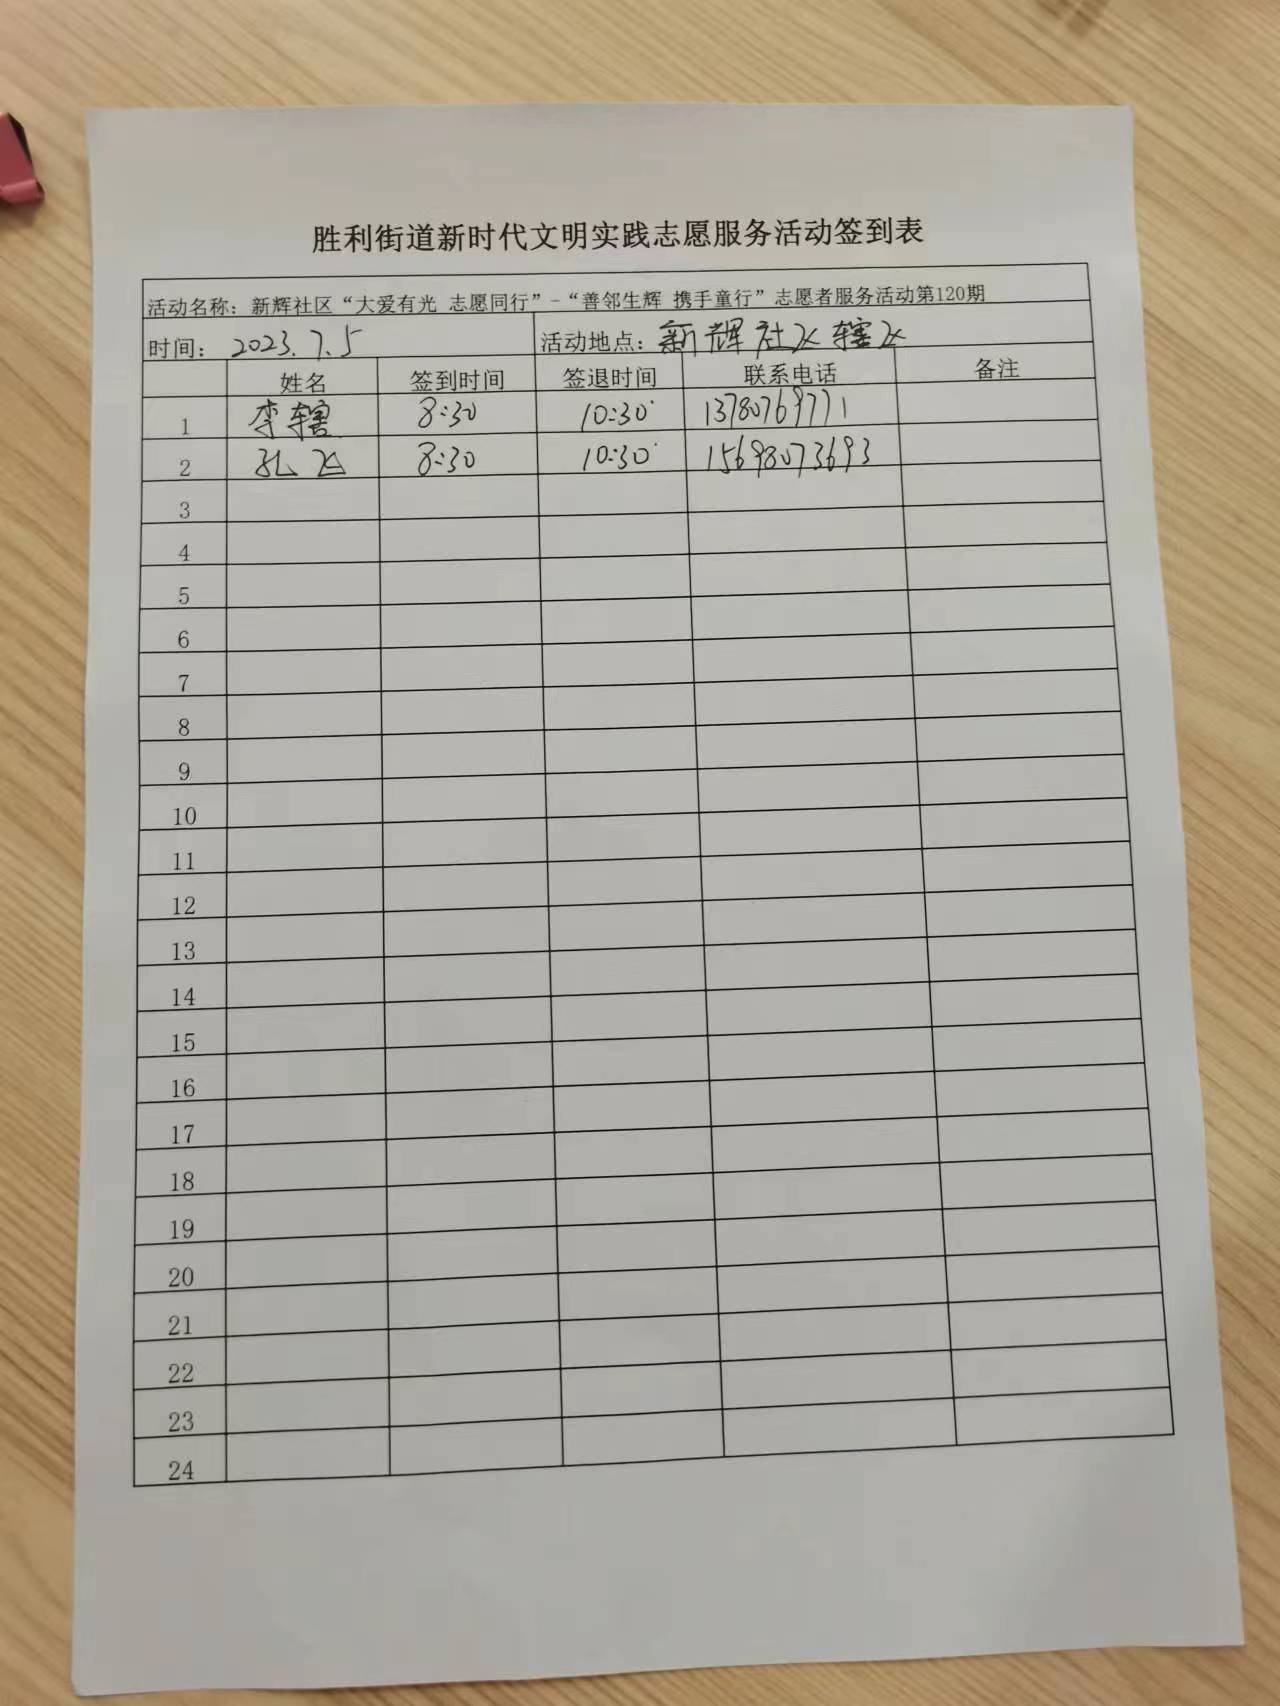 胜利街道新时代文明实践志愿服务活动签到表
活动名称：新辉社区“大爱有光 志愿同行”-“善邻生辉 携手童行”志愿者服务活动第120期
时间：2023.7.5 活动地点：新辉社区辖区
姓名 签到时间 签退时间 联系电话 备注
1 李辖 8:30 10:30 13780769771
2 8:30 10:30 15698073693
3
4
5
6
7
8
9
10
11
12
13
14
15
16
17
18
19
20
21
22
23
24